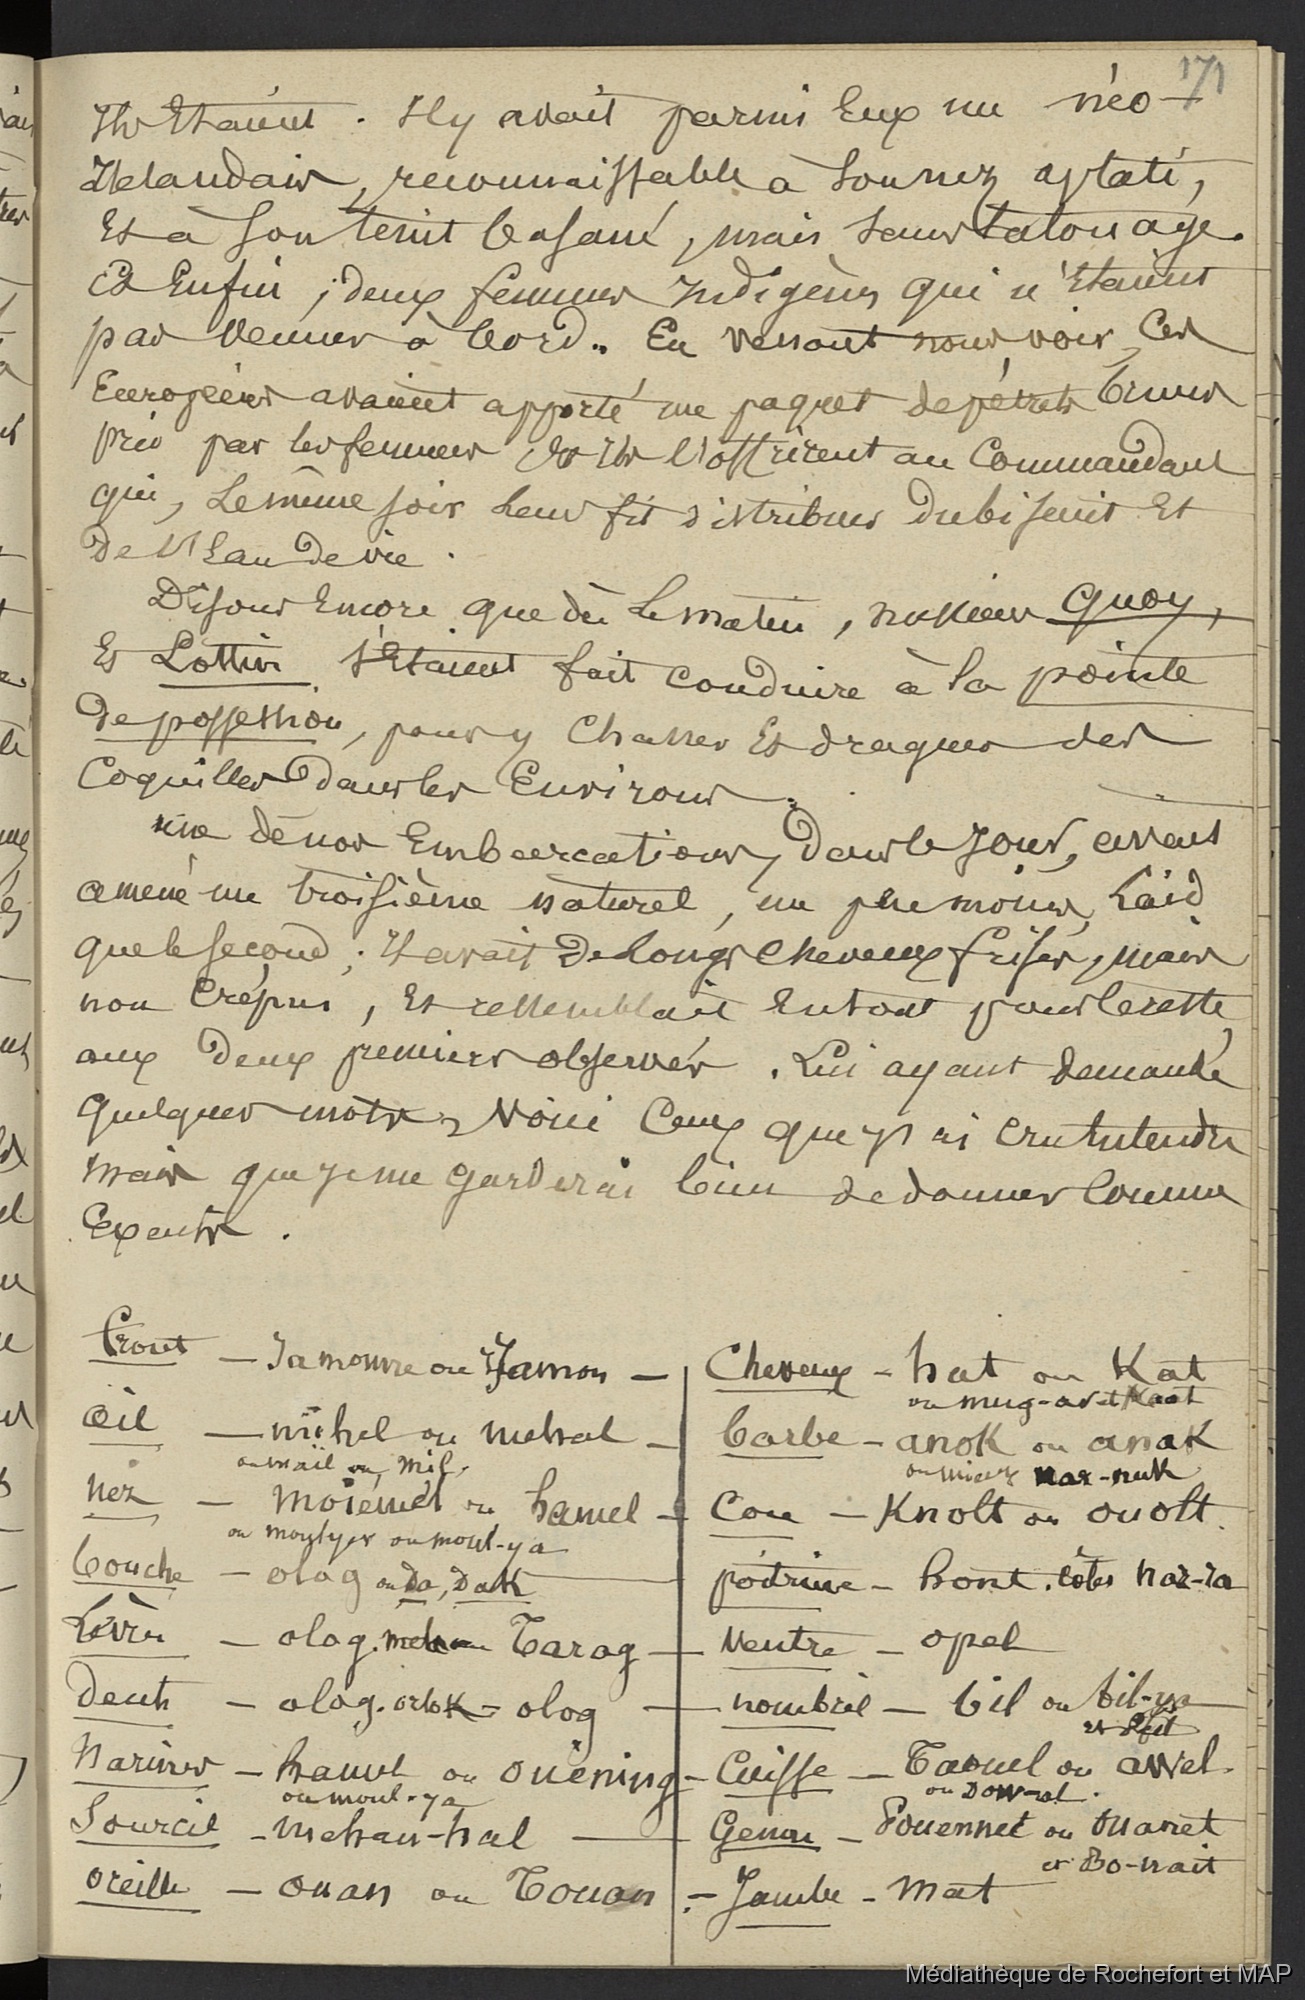 171
Ils Etaient. Il y avait parmi Eux un néo-
Zelandais, reconnaissable à son nez aplati,
Et à son teint basané, mais sans tatouage.
Et Enfin, deux femmes Indigènes qui n'Etaient
pas venues à bord. En venant nous voir, Ces
Européens avaient apporté un paquet de pétrels bruns
pris par les femmes Et Ils l'offrirent au Commandant
qui, Le même soir leur fit distribuer du biscuit Et
De l'Eau De vie.
Disons Encore que dès Le matin, messieurs Quoy,
Et Lottin s'Etaient fait conduire à la pointe
De possession, pour y Chasser Et draguer des
Coquilles Dans les Environs.
une de nos Embarcations, Dans le Jour, avait
amené un troisième naturel, un peu moins Laid
que le second; Il avait De longs cheveux frisés, mais
non Crépus, Et ressemblait En tout pour le reste,
aux Deux premiers observés. Lui ayant demandé
quelques mots, Voici Ceux que j'ai cru Entendre
mais que je me garderai bien de donner Comme
Exacts.
Front — Jamoure ou Iamon —
Œil — mihel ou mehal —
ou mail ou mil.
nez — moiémél ou hamel —
ou moulyer ou moul-ya
bouche — olag ou Da, Dak
Lèvres — olag. Tarag —
Dents — olog. orlok — olog
Narines — hamel ou ouéning —
ou moul-ya
Sourcil — mehan-hal —
oreille — ouan ou Touan
Cheveux — hat ou Kat
ou mug-avet Kaat
barbe — anok ou anak
ou mieux nar-nuk
Cou — Knolt ou ouolt
poitrine — hont. côtes naz-ra
Ventre — opel
nombril — bil ou bil-ya
Cuisse — Taouel ou awel.
ou Dow-al.
Genou — Pouennet ou ouanet
et Bo-nait
Jambe — mat
Médiathèque de Rochefort et MAP